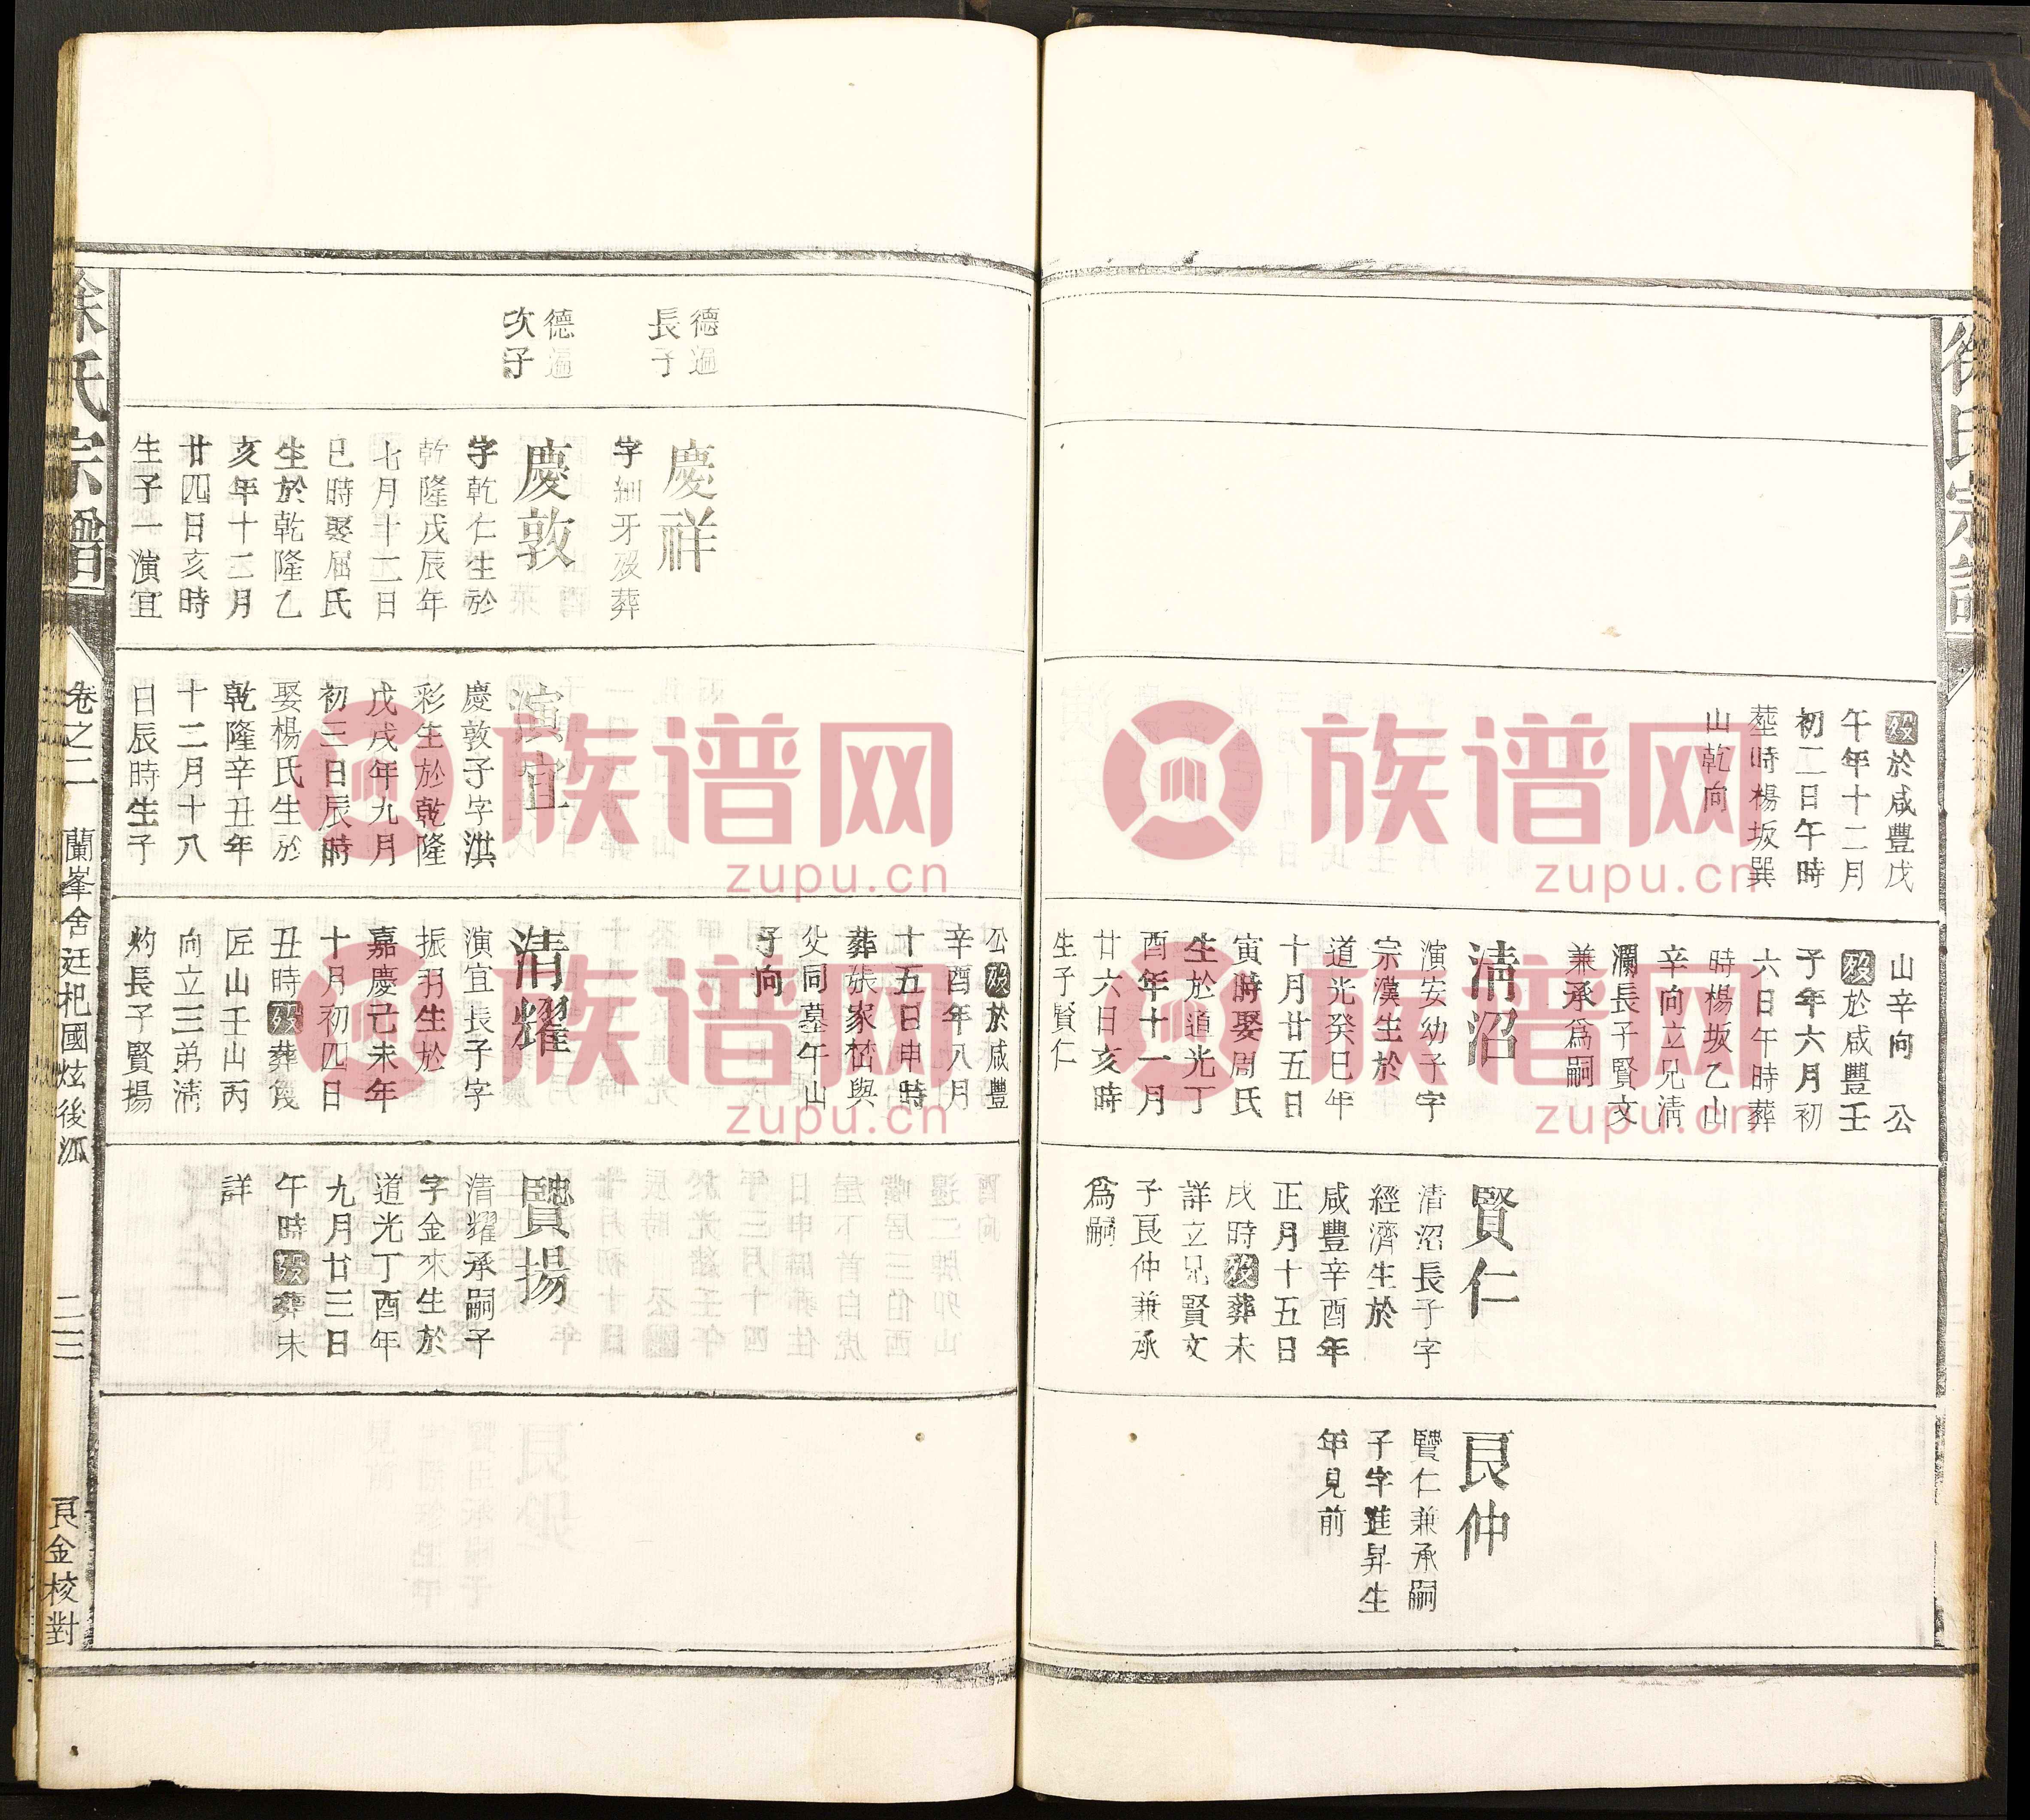 徐氏宗譜
歿於咸豐戊
午年十二月
初二日午時
塟時楊坂巽
山乾向
山辛向　公
歿於咸豐壬
子年六月初
六日午時葬
時楊坂乙山
辛向立兄清
瀾長子賢文
兼承爲嗣
清沼
演安幼子字
宗漢生於
道光癸巳年
十月廿五日
寅時娶周氏
生於道光丁
酉年十一月
廿六日亥時
生子賢仁
賢仁
清沼長子字
經濟生於
咸豐辛酉年
正月十五日
戌時歿葬未
詳立兄賢文
子良仲兼承
爲嗣
良仲
賢仁兼承嗣
子字進昇生
年見前
德過
長子
德過
次子
慶祥
字細牙歿葬
慶敦
字乾仁生於
乾隆戊辰年
七月十二日
巳時娶屈氏
生於乾隆乙
亥年十二月
廿四日亥時
生子一演宜
演宜
慶敦子字淇
彩生於乾隆
戊戌年九月
初三日辰時
娶楊氏生於
乾隆辛丑年
十二月十八
日辰時生子
公歿於咸豐
辛酉年八月
十五日申時
葬張家㙮與
父同墓午山
子向
清耀
演宜長子字
振玥生於
嘉慶己未年
十月初四日
丑時歿葬篾
匠山壬山丙
向立三弟清
灼長子賢揚
賢揚
清耀承嗣子
字金來生於
道光丁酉年
九月廿三日
午時歿葬未
詳
徐氏宗譜
卷之二
蘭峯舍廷杞國炫後派
二三
良金校對
族谱网
zupu.cn
族谱网
zupu.cn
族谱网
zupu.cn
族谱网
zupu.cn